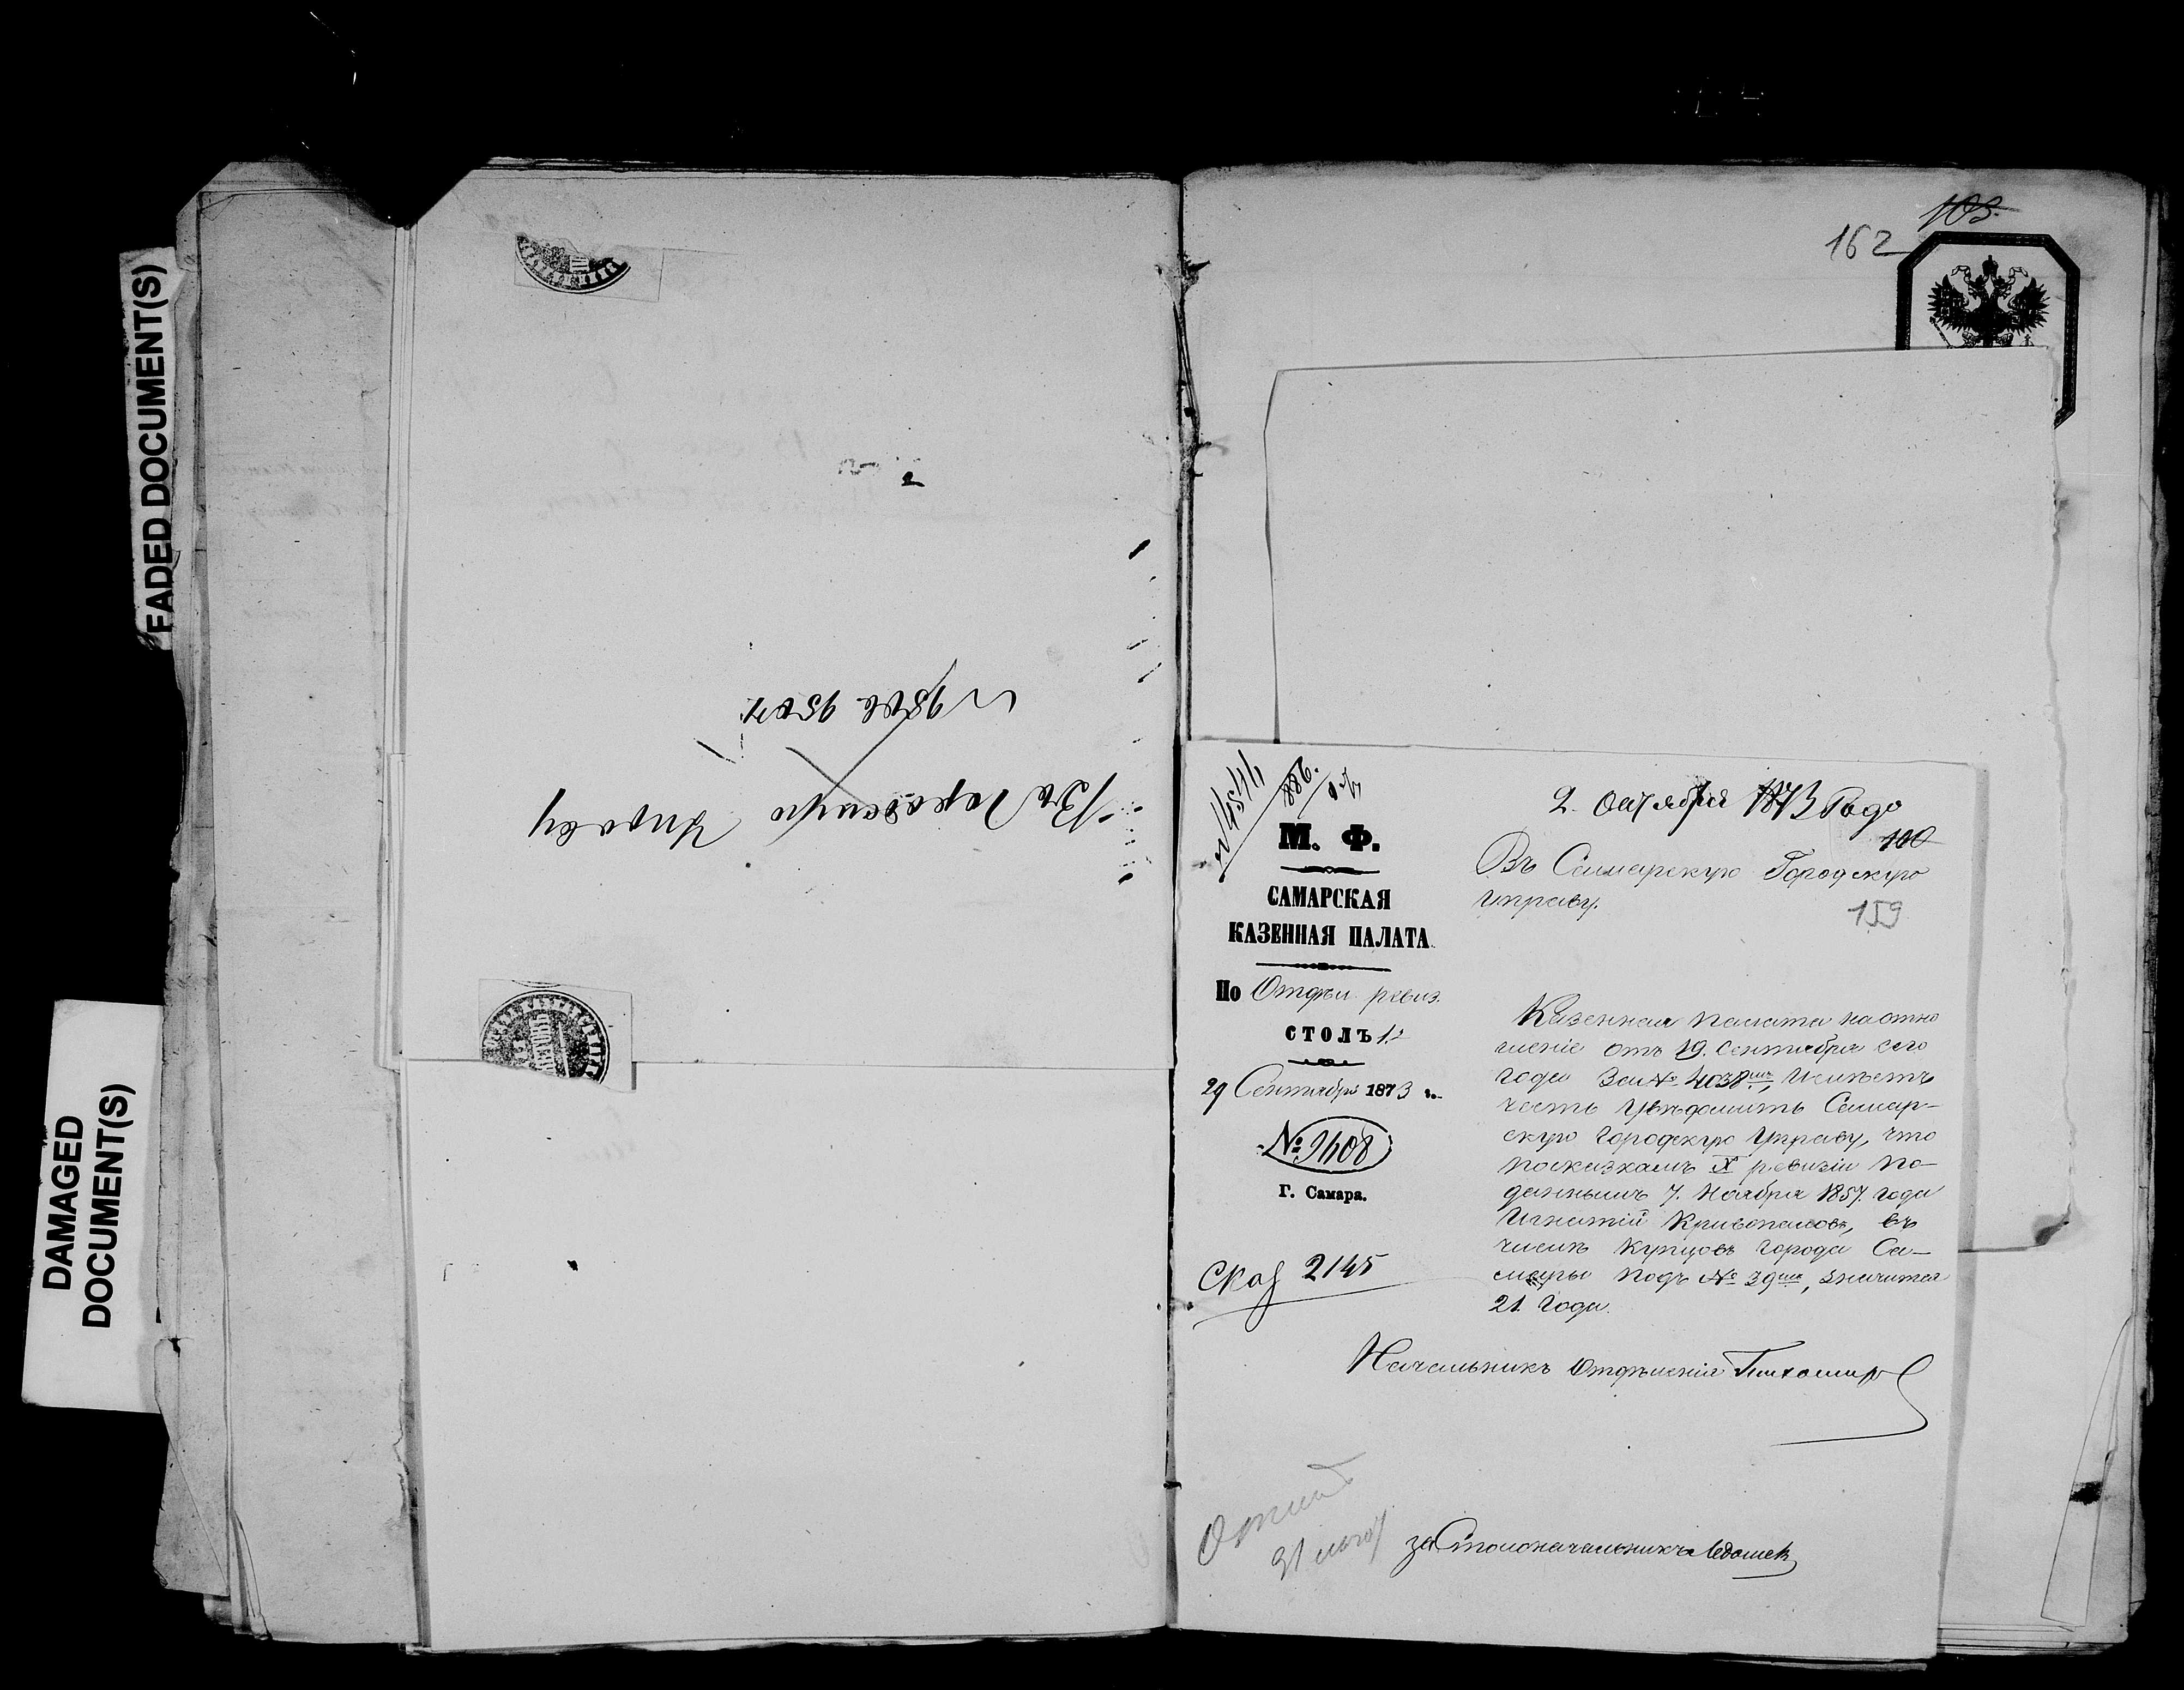 FADED DOCUMENT(S)
DAMAGED
DOCUMENT(S)
Въ Городскую Управу
103.
162
М. Ф.
САМАРСКАЯ
КАЗЕННАЯ ПАЛАТА.
По Отдѣл. ревиз.
СТОЛЪ 1.
29 Сентября 1873 г.
№ 9408
Г. Самара.
Сказ 2145
2. Октября 1873 Года
100
Въ Самарскую Городскую
Управу.
159
Казенная Палата на отно
шеніе отъ 19. Сентября сего
года За № 4038мъ, Имѣетъ
честь Увѣдомить Самар-
скую Городскую Управу, что
посказкамъ X ревизіи по-
даннымъ 7. Ноября 1857. года
Игнатій Кривопаловъ, въ
числѣ Купцовъ Города Са-
мары подъ № 39мъ, значится
21. Года.
Начальникъ Отдѣленія Тихомир
за Столоначальникъ